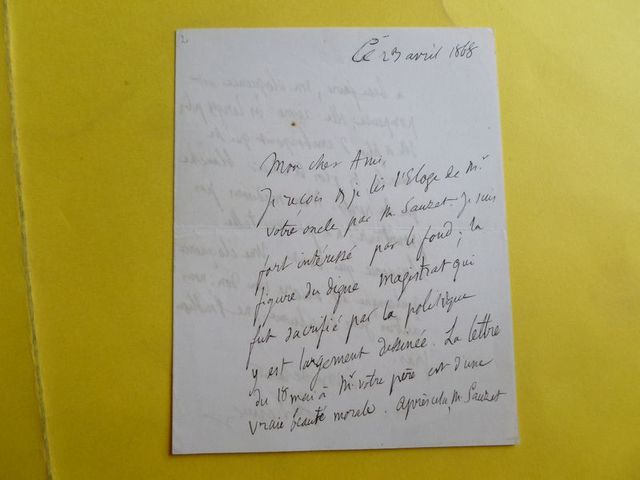 2
Ce 23 avril 1868
Mon cher Ami,
Je reçois & je lis l'Eloge de Mr
votre oncle par M. Sauzet. Je suis
fort intéressé par le fond ; la
figure du digne magistrat qui
fut sacrifié par la politique
y est largement dessinée. La lettre
du 18 mai à Mr votre père est d'une
vraie beauté morale. Après cela, M. Sauzet